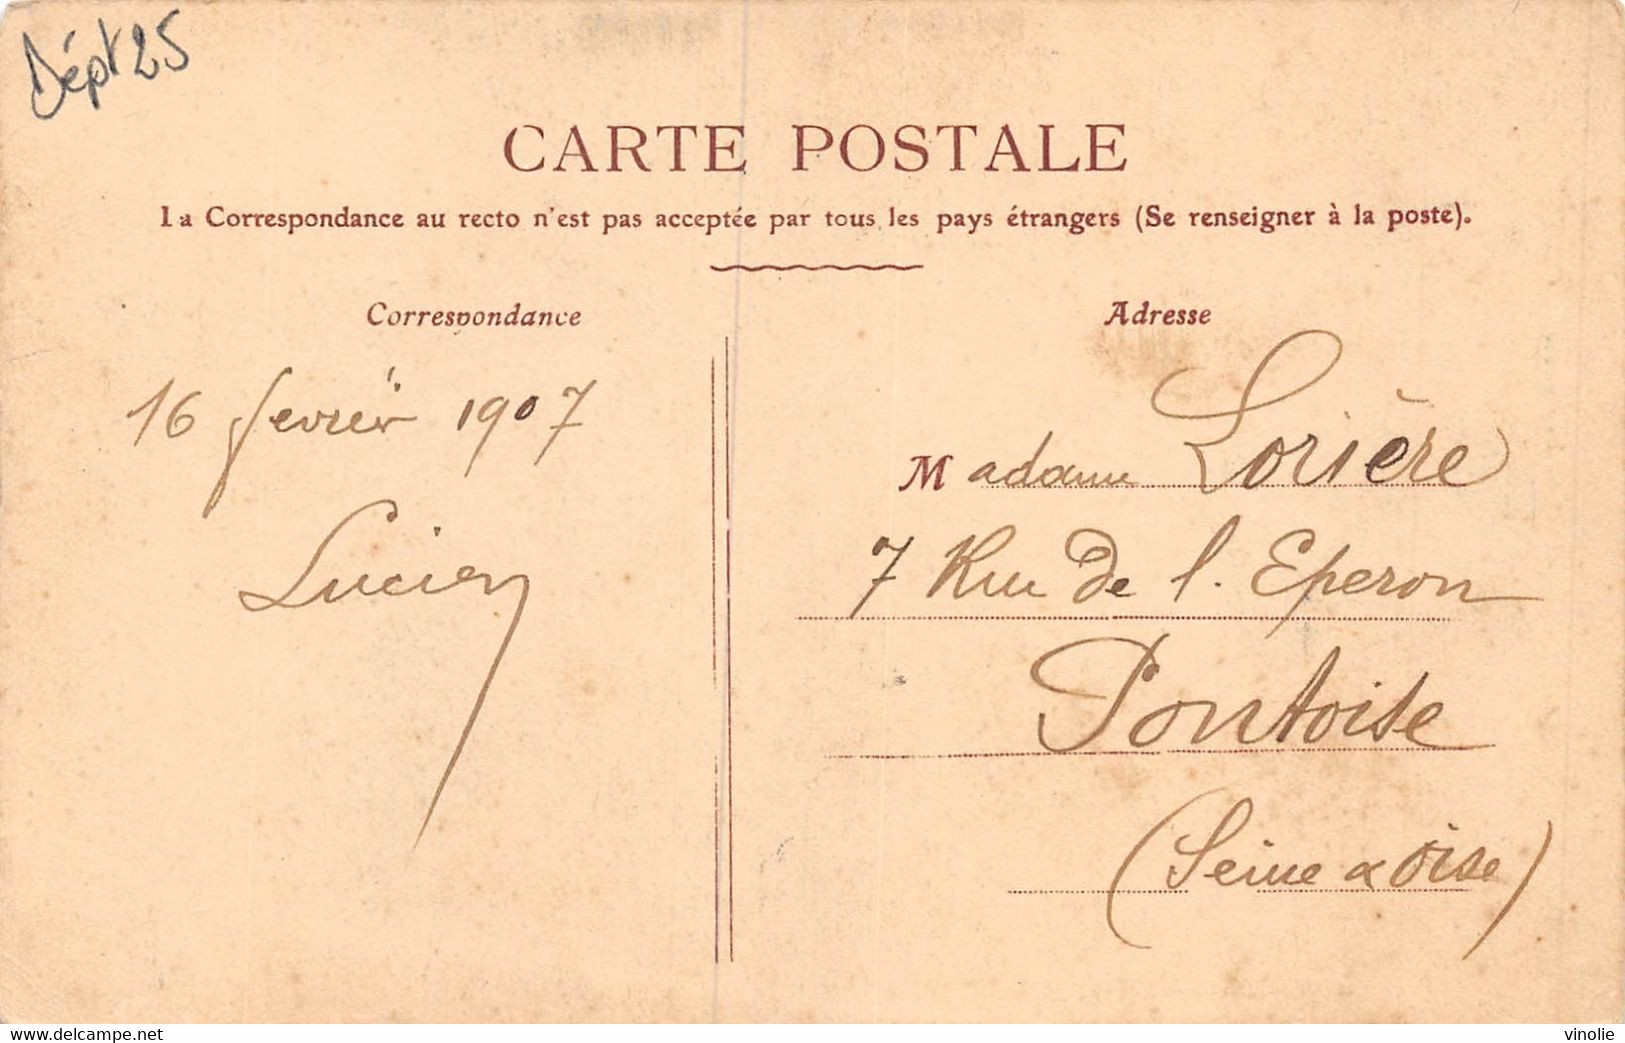 Dépt 25
CARTE POSTALE
La Correspondance au recto n'est pas acceptée par tous les pays étrangers (Se renseigner à la poste).
Correspondance
16 fevrier 1907
Lucien
Adresse
Madame Lorière
7 Rue De l. Eperon
Pontoise
(Seine & Oise)
delcampe.net
vinolie